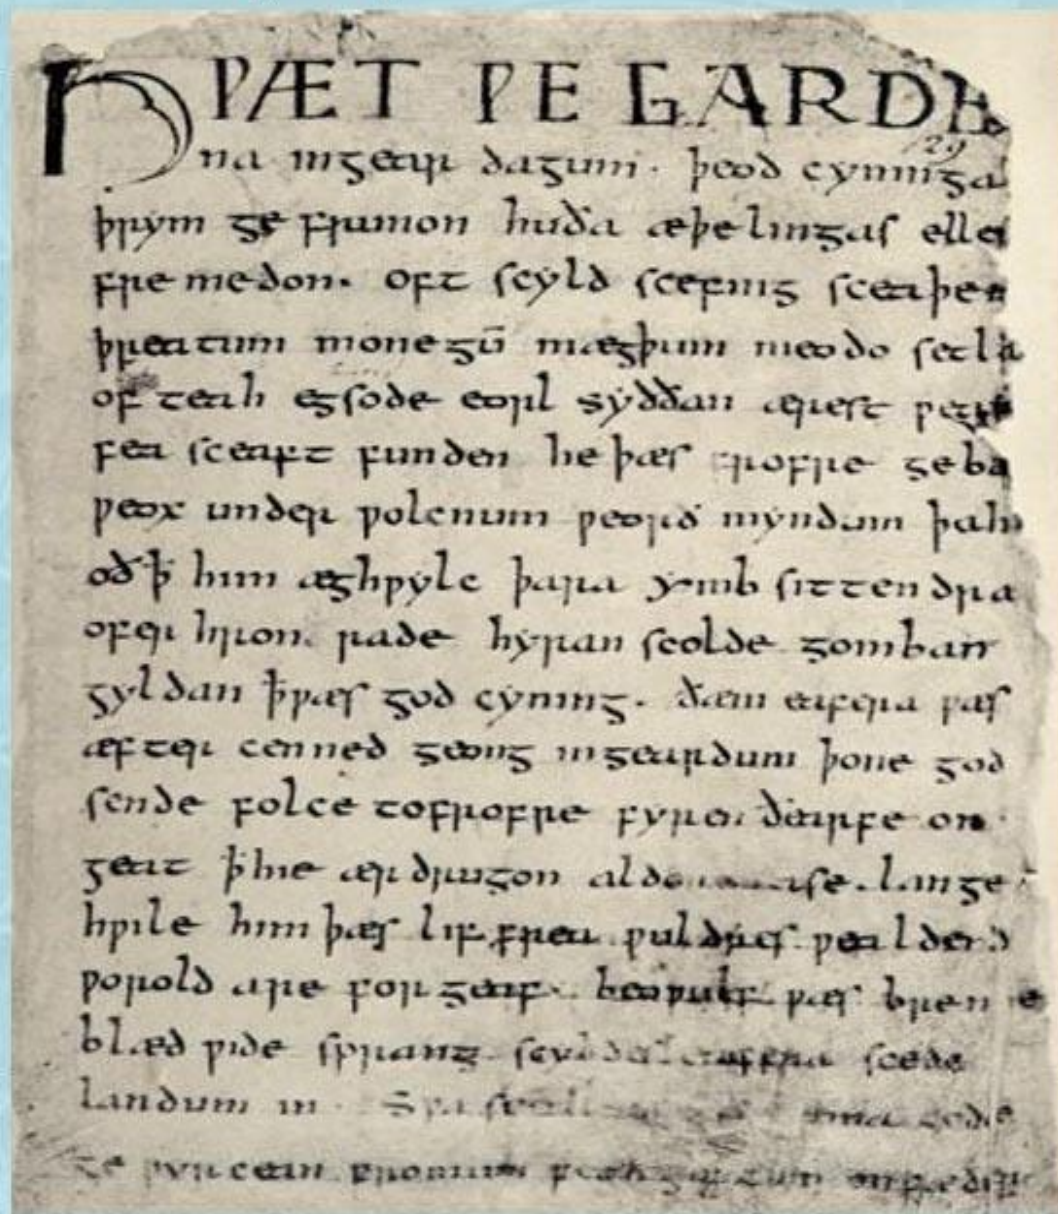 HǷÆT ǷE GARDE
na ingear dagum · þeod cyninga
þrym ge frunon huða æþelingas elle
fre medon. oft scyld scefing sceaþe
þreatum monegū mægþum meodo setla
of teah egsode eorl syððan ærest
fea sceaft funden he þæs frofre geba
ƿeox under ƿolcnum ƿeorð myndum þah
oð ꝥ him æghƿylc þara ymb sittendra
ofer hron rade hyran scolde gomban
gyldan ꝥ ƿæs god cyning · ðæm eafera ƿæs
æfter cenned geong in geardum þone god
sende folce to frofre fyren ðearfe on
geat ꝥ hie ær drugon aldor lange
hƿile him þæs lif frea ƿuldres ƿealdend
ƿorold are for geaf · beoƿulf ƿæs breme
blæd ƿide sprang scyldes eafera scede
landum in · Sƿa gode
ge ƿyrcean fromum feoh giftum
129